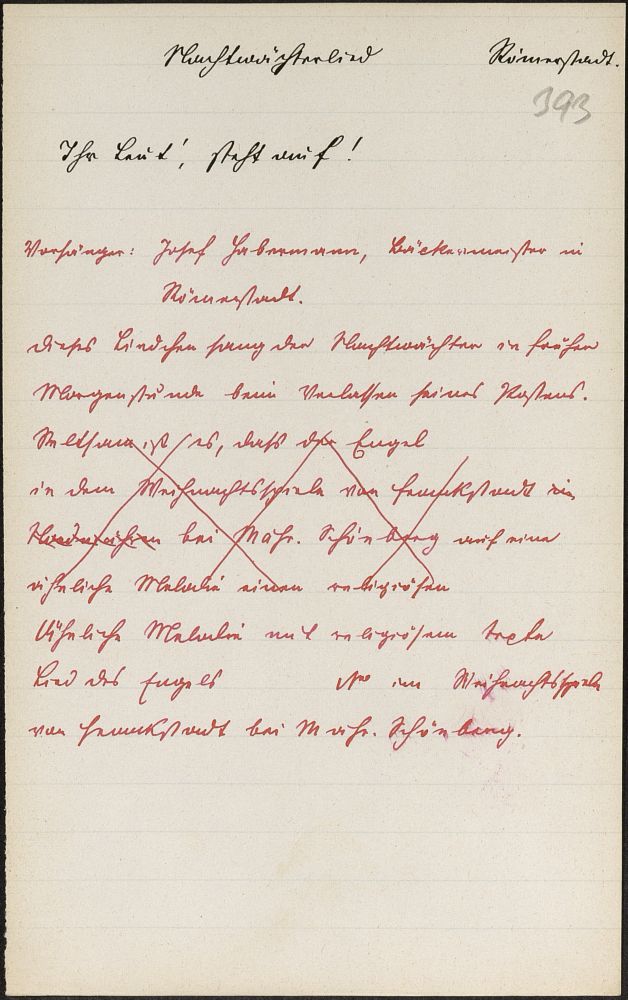 Nachtwächterlied Römerstadt.
393
Ihr Leut', steht auf!
Vorsänger: Josef Habermann, Bäckermeister in
Römerstadt.
Dieses Liedchen sang der Nachtwächter in früher
Morgenstunde beim Verlassen seines Postens.
Seltsam ist es, daß der Engel
in dem Weihnachtsspiele von Frankstadt in
Nordmähren bei Mähr. Schönberg auf eine
ähnliche Melodie einen religiösen
Ähnliche Melodie mit religiösem Texte
Lied des Engels No im Weihnachtsspiele
von Frankstadt bei Mähr. Schönberg.